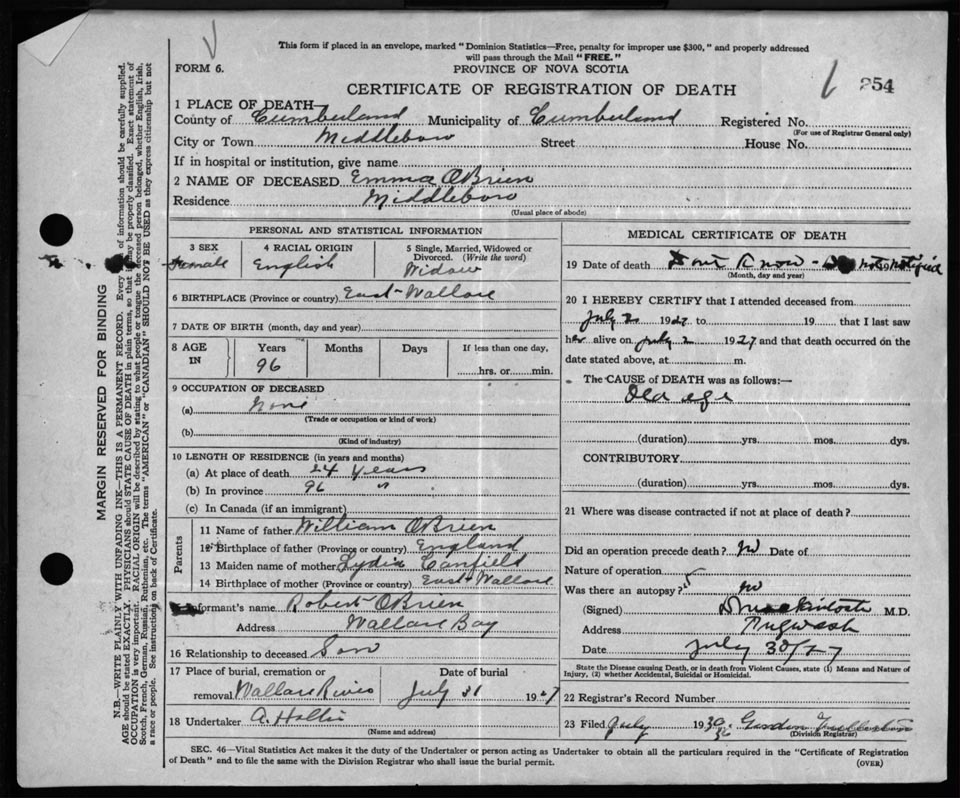 This form if placed in an envelope, marked "Dominion Statistics—Free, penalty for improper use $300," and properly addressed
will pass through the Mail "FREE."
FORM 6.
PROVINCE OF NOVA SCOTIA
254
CERTIFICATE OF REGISTRATION OF DEATH
1 PLACE OF DEATH—
County of Cumberland Municipality of Cumberland Registered No.
(For use of Registrar General only)
City or Town Middleboro Street House No.
If in hospital or institution, give name
2 NAME OF DECEASED Emma OBrien
Residence Middleboro
(Usual place of abode)
PERSONAL AND STATISTICAL INFORMATION
3 SEX 4 RACIAL ORIGIN 5 Single, Married, Widowed or
Divorced. (Write the word)
Female English Widow
6 BIRTHPLACE (Province or country) East Wallace
7 DATE OF BIRTH (month, day and year)
8 AGE IN Years Months Days If less than one day,
96 hrs. or min.
9 OCCUPATION OF DECEASED
(a) None
(Trade or occupation or kind of work)
(b)
(Kind of industry)
10 LENGTH OF RESIDENCE (in years and months)
(a) At place of death 24 years
(b) In province 96 "
(c) In Canada (if an immigrant)
Parents
11 Name of father William OBrien
12 Birthplace of father (Province or country) England
13 Maiden name of mother Lydia Canfield
14 Birthplace of mother (Province or country) East Wallace
Informant's name Robert OBrien
Address Wallace Bay
16 Relationship to deceased Son
17 Place of burial, cremation or Date of burial
removal Wallace River July 31 1927
18 Undertaker A. Hollis
(Name and address)
MEDICAL CERTIFICATE OF DEATH
19 Date of death Dont Know - not notified 19
(Month, day and year)
20 I HEREBY CERTIFY that I attended deceased from
July 2 1927 to 19 that I last saw
her alive on July 2 1927 and that death occurred on the
date stated above, at m.
The CAUSE of DEATH was as follows:—
Old age
(duration) yrs. mos. dys.
CONTRIBUTORY
(duration) yrs. mos. dys.
21 Where was disease contracted if not at place of death?
Did an operation precede death? No Date of
Nature of operation
Was there an autopsy? No
(Signed) Mackintosh M.D.
Address Pugwash
Date July 30/27
State the Disease causing Death, or in death from Violent Causes, state (1) Means and Nature of
Injury, (2) whether Accidental, Suicidal or Homicidal.
22 Registrar's Record Number
23 Filed July 30 19 Gordon
(Division Registrar)
SEC. 46—Vital Statistics Act makes it the duty of the Undertaker or person acting as Undertaker to obtain all the particulars required in the "Certificate of Registration
of Death" and to file the same with the Division Registrar who shall issue the burial permit.
(OVER)
MARGIN RESERVED FOR BINDING
N.B.—WRITE PLAINLY WITH UNFADING INK—THIS IS A PERMANENT RECORD. Every of information should be carefully supplied.
AGE should be stated EXACTLY. PHYSICIANS should STATE CAUSE OF DEATH in plain terms, so that may be properly classified. Exact statement of
OCCUPATION is very important. RACIAL ORIGIN will be described by stating to what people or tongue the deceased person belonged, whether English, Irish,
Scotch, French, German, Russian, Ruthenian, etc. The terms "AMERICAN" or "CANADIAN" SHOULD NOT BE USED as they express citizenship but not
a race or people. See instructions on back of Certificate.